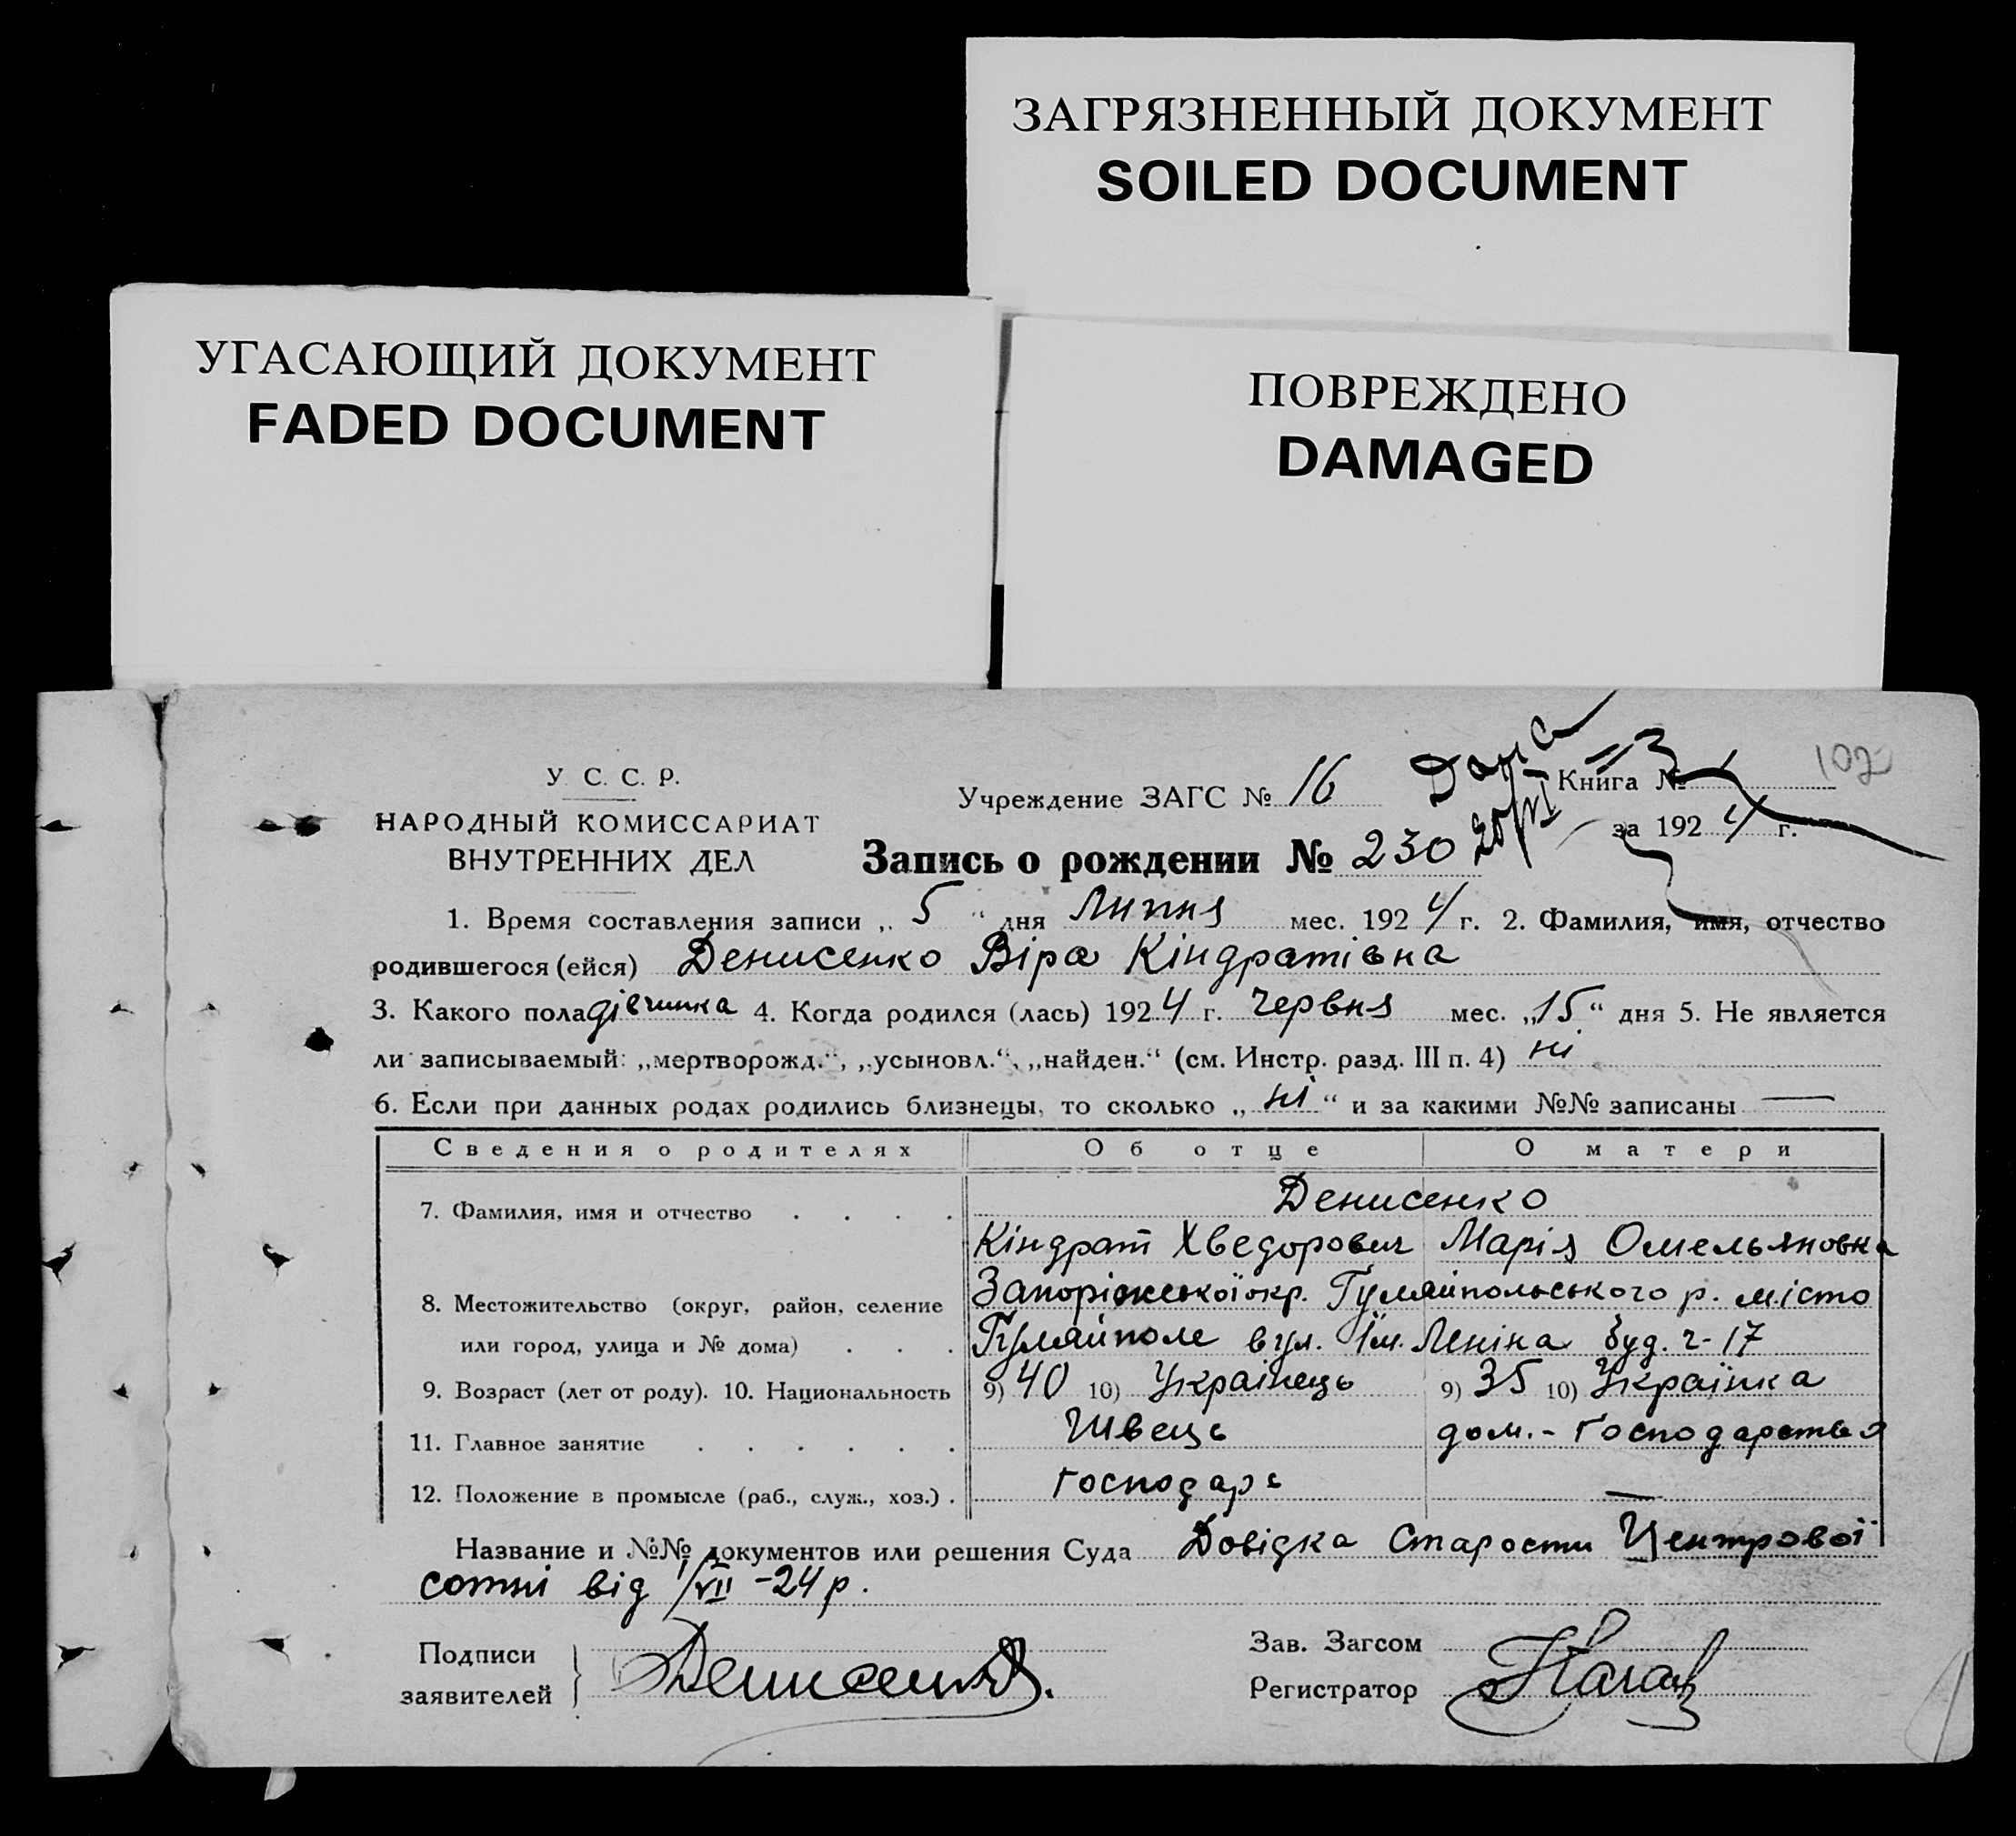 ЗАГРЯЗНЕННЫЙ ДОКУМЕНТ
SOILED DOCUMENT
УГАСАЮЩИЙ ДОКУМЕНТ
FADED DOCUMENT
ПОВРЕЖДЕНО
DAMAGED
102
У. С. С. Р.
НАРОДНЫЙ КОМИССАРИАТ
ВНУТРЕННИХ ДЕЛ
Учреждение ЗАГС № 16
Книга №
за 1924 г.
Запись о рождении № 230
20/VI
1. Время составления записи „ 5 “ дня Липня мес. 1924 г. 2. Фамилия, имя, отчество
родившегося (ейся) Денисенко Віра Кіндратівна
3. Какого пола дівчинка 4. Когда родился (лась) 1924 г. червня мес. „15“ дня 5. Не является
ли записываемый: „мертворожд.“, „усыновл.“, „найден.“ (см. Инстр. разд. III п. 4) ні
6. Если при данных родах родились близнецы, то сколько „ ні “ и за какими №№ записаны —
Сведения о родителях Об отце О матери
7. Фамилия, имя и отчество . . . . Денисенко
Кіндрат Хведорович Марія Омельяновна
8. Местожительство (округ, район, селение Запоріжської окр. Гуляйпольського р. місто
или город, улица и № дома) . . . Гуляйполе вул. Ім. Леніна буд. ч-17
9. Возраст (лет от роду). 10. Национальность 9) 40 10) Українець 9) 35 10) Українка
11. Главное занятие . . . . . . Швець дом.-господарства
12. Положение в промысле (раб., служ., хоз.) . господарь —
Название и №№ документов или решения Суда Довідка Старости Центрової
сотні від 1/VII -24 р.
Подписи
заявителей
Денисенко.
Зав. Загсом
Регистратор